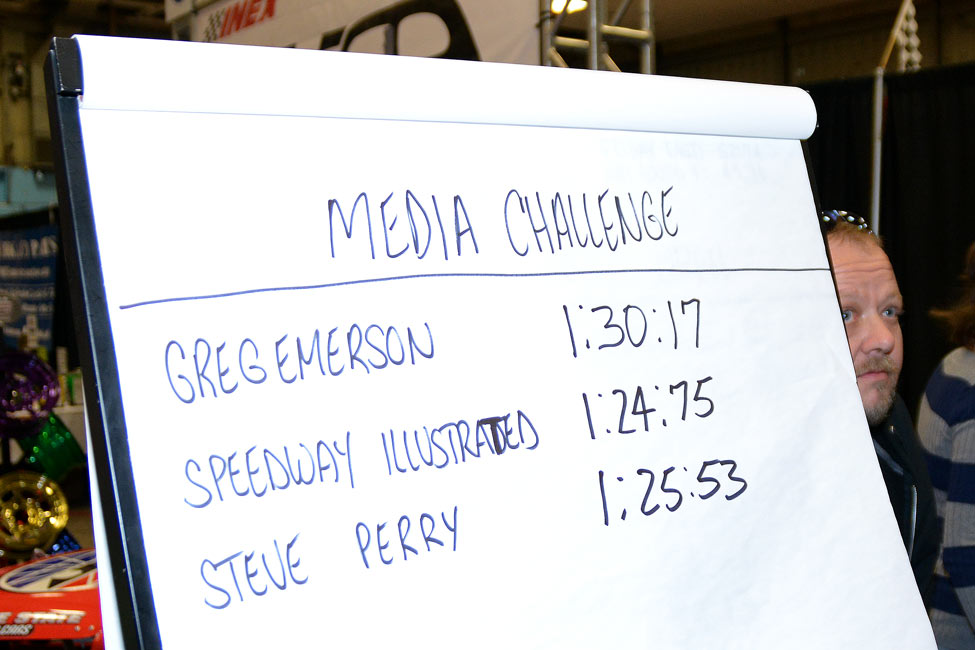 INEX
MEDIA CHALLENGE
GREG EMERSON 1:30:17
SPEEDWAY ILLUSTRATED 1:24:75
STEVE PERRY 1:25:53
E STATE